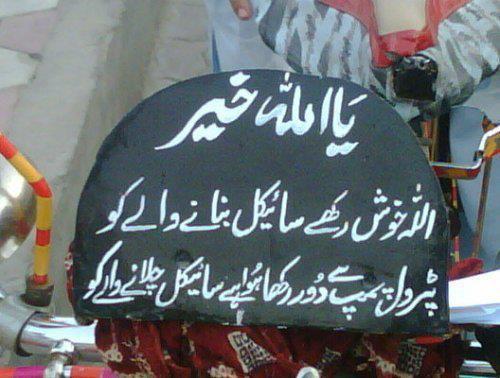 یا اللہ خیر
اللہ خوش رکھے سائیکل بنانے والے کو
پٹرول پمپ سے دور رکھا ہوا ہے سائیکل چلانے والے کو